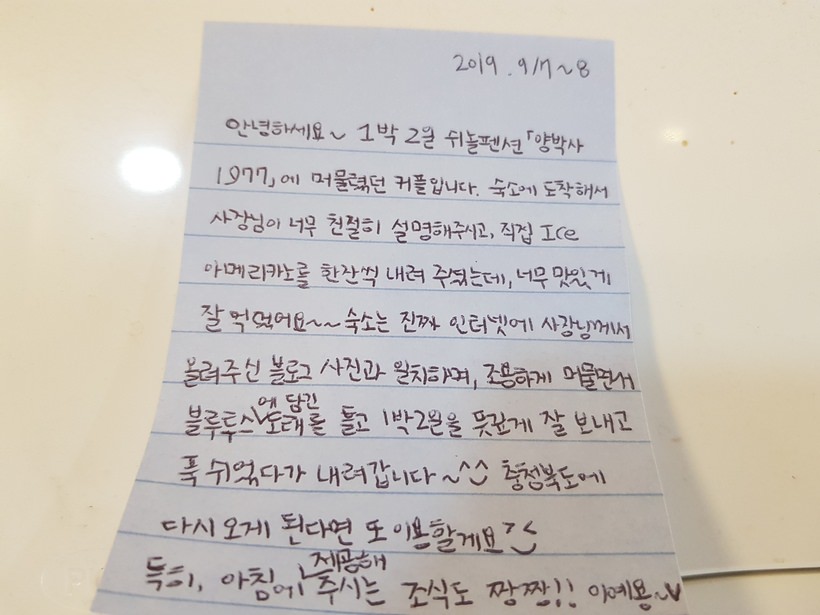 2019. 9/7~8
안녕하세요~ 1박 2일 쉬놀펜션「양박사
1977」에 머물렀던 커플입니다. 숙소에 도착해서
사장님이 너무 친절히 설명해주시고, 직접 Ice
아메리카노를 한잔씩 내려 주셨는데, 너무 맛있게
잘 먹었어요~~ 숙소는 진짜 인터넷에 사장님께서
올려주신 블로그 사진과 일치하며, 조용하게 머물면서
블루투스에 담긴 노래를 틀고 1박2일을 뜻깊게 잘 보내고
푹 쉬었다가 내려갑니다~^^ 충청북도에
다시 오게 된다면 또 이용할게요^^
특히, 아침에 제공해 주시는 조식도 짱짱!! 이예용~♥